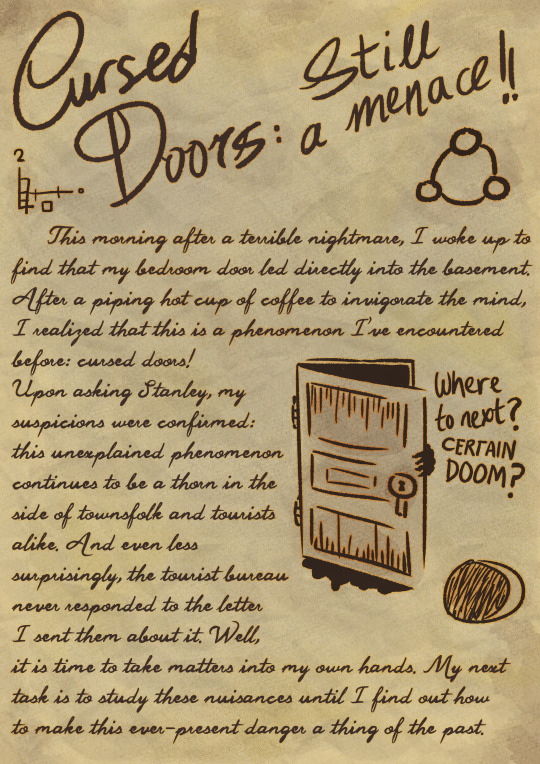 Cursed
Doors:
Still
a menace!!
2
This morning after a terrible nightmare, I woke up to
find that my bedroom door led directly into the basement.
After a piping hot cup of coffee to invigorate the mind,
I realized that this is a phenomenon I've encountered
before: cursed doors!
Upon asking Stanley, my
suspicions were confirmed:
this unexplained phenomenon
continues to be a thorn in the
side of townsfolk and tourists
alike. And even less
surprisingly, the tourist bureau
never responded to the letter
I sent them about it. Well,
it is time to take matters into my own hands. My next
task is to study these nuisances until I find out how
to make this ever-present danger a thing of the past.
Where
to next?
CERTAIN
DOOM?